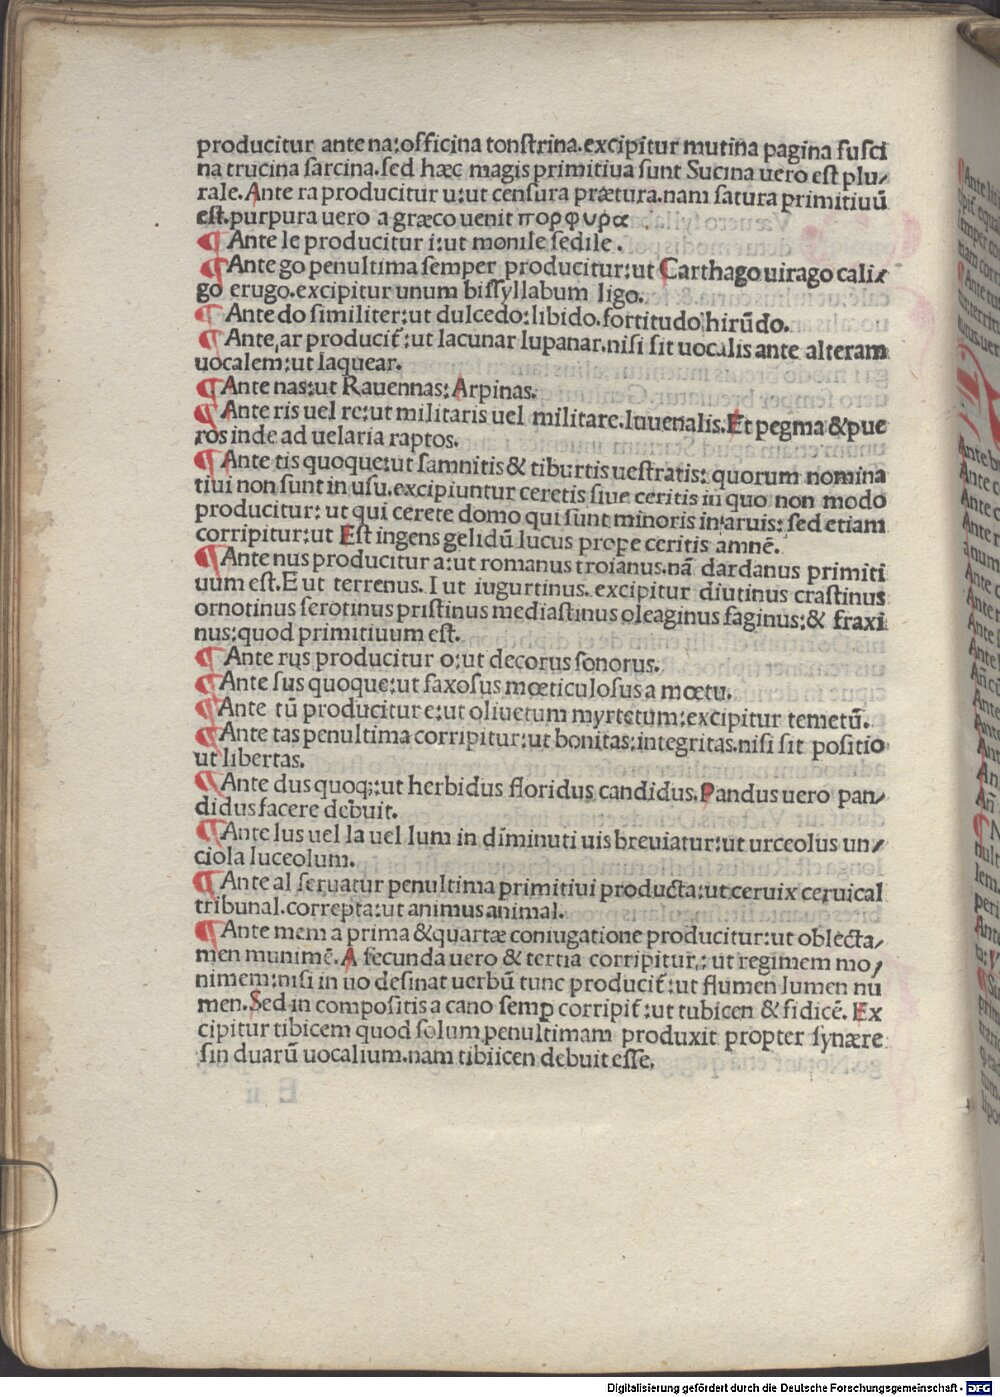 producitur ante na:officina tonſtrina.excipitur mutina pagina fuſci
na trucina ſarcina.ſed hæc magis primitiua ſunt Sucina uero eſt plu⸗
rale.Ante ra producitur u:ut cenſura prætura.nam ſatura primitiuū
eſt.purpura uero a græco uenit πορφυρα
¶ Ante le producitur i:ut monile ſedile.
¶ Ante go penultima ſemper producitur:ut Carthago uirago cali⸗
go erugo.excipitur unum biſſyllabum ligo.
¶ Ante do ſimiliter:ut dulcedo:libido.fortitudo hirūdo.
¶ Ante ar producit̄:ut lacunar lupanar.niſi ſit uocalis ante alteram
uocalem:ut laquear.
¶ Ante nas:ut Rauennas:Arpinas.
¶ Ante ris uel re:ut militaris uel militare.Iuuenalis.Et pegma & pue
ros inde ad uelaria raptos.
¶ Ante tis quoque:ut ſamnitis & tiburtis ueſtratis: quorum nomina
tiui non ſunt in uſu.excipiuntur ceretis ſiue ceritis in quo non modo
producitur: ut qui cerete domo qui ſunt minoris in aruis: ſed etiam
corripitur:ut Eſt ingens gelidū lucus prope ceritis amnē.
¶ Ante nus producitur a:ut romanus troianus.nā dardanus primiti
uum eſt.E ut terrenus. I ut iugurtinus. excipitur diutinus craſtinus
ornotinus ſerotinus priſtinus mediaſtinus oleaginus faginus:& fraxi
nus:quod primitiuum eſt.
¶ Ante rus producitur o:ut decorus ſonorus.
¶ Ante ſus quoque:ut ſaxoſus mœticuloſus a mœtu.
¶ Ante tū producitur e:ut oliuetum myrtetum:excipitur temetū.
¶ Ante tas penultima corripitur:ut bonitas:integritas.niſi ſit poſitio
ut libertas.
¶ Ante dus quoq;:ut herbidus floridus candidus.Pandus uero pan⸗
didus facere debuit.
¶ Ante lus uel la uel lum in diminuti uis breuiatur:ut urceolus un⸗
ciola luceolum.
¶ Ante al ſeruatur penultima primitiui producta:ut ceruix ceruical
tribunal.correpta:ut animus animal.
¶ Ante mem a prima & quartæ coniugatione producitur:ut oblecta⸗
men munimē.A ſecunda uero & tertia corripitur: ut regimem mo⸗
nimem:niſi in uo deſinat uerbū tunc producit̄:ut flumen lumen nu
men.Sed in compoſitis a cano ſemp corripit̄:ut tubicen & fidicē. Ex
cipitur tibicem quod ſolum penultimam produxit propter ſynære
ſin duarū uocalium.nam tibiicen debuit eſſe.
Digitalisierung gefördert durch die Deutsche Forschungsgemeinschaft - DFG